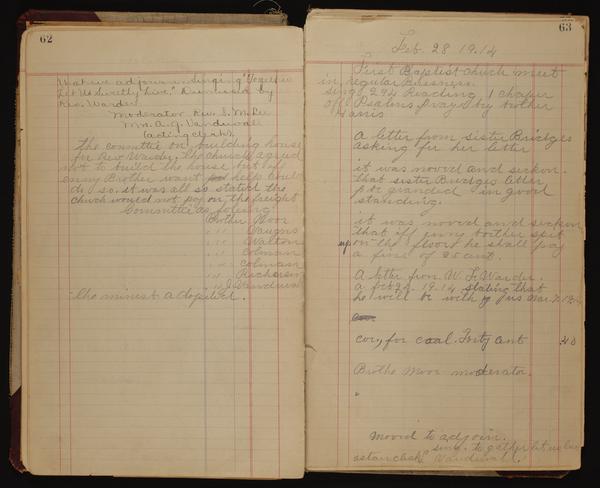 62
that we adjourn. Singing "Together
Let Us Sweetly Live." Dismissed by
Rev. Warder
Moderator Rev. S. McGee
Mrs. A. J. Vanduvall
(acting clerk).
the committe on building house
for Rev Warder. The Church agreed
not to build the house, but if
enny Brother want help could
do so. it was all so stated the
church would not pay on the freight
Committe as folowing
Brother Moor
" " Vaughs
" " Walton
" " Colman
" " Colman
" " Richerson
" " J Vanduvall
the minest adopted.
63
Feb. 28 19.14
First Baptist Chuch meet
in regular bussness.
sing 294 Reading 1 chapter
of Psalms prayer by brother
Harris
A letter from sister Bridges
asking for her letter
it was moved and seckon.
that sister Bridges letter
be granded in good
standing.
it was moved and seckon
that if enny brother spit
up on the floor he shall pay
a fine of 25 cent.
A letter from W. L. Warder.
a feb 24. 19.14 stating that
he will be with us Mar.
for coal. Forty cent 40
Brothe Moor moderator.
Moved to adjoin.
sing. to gather let us
Vanduvall.